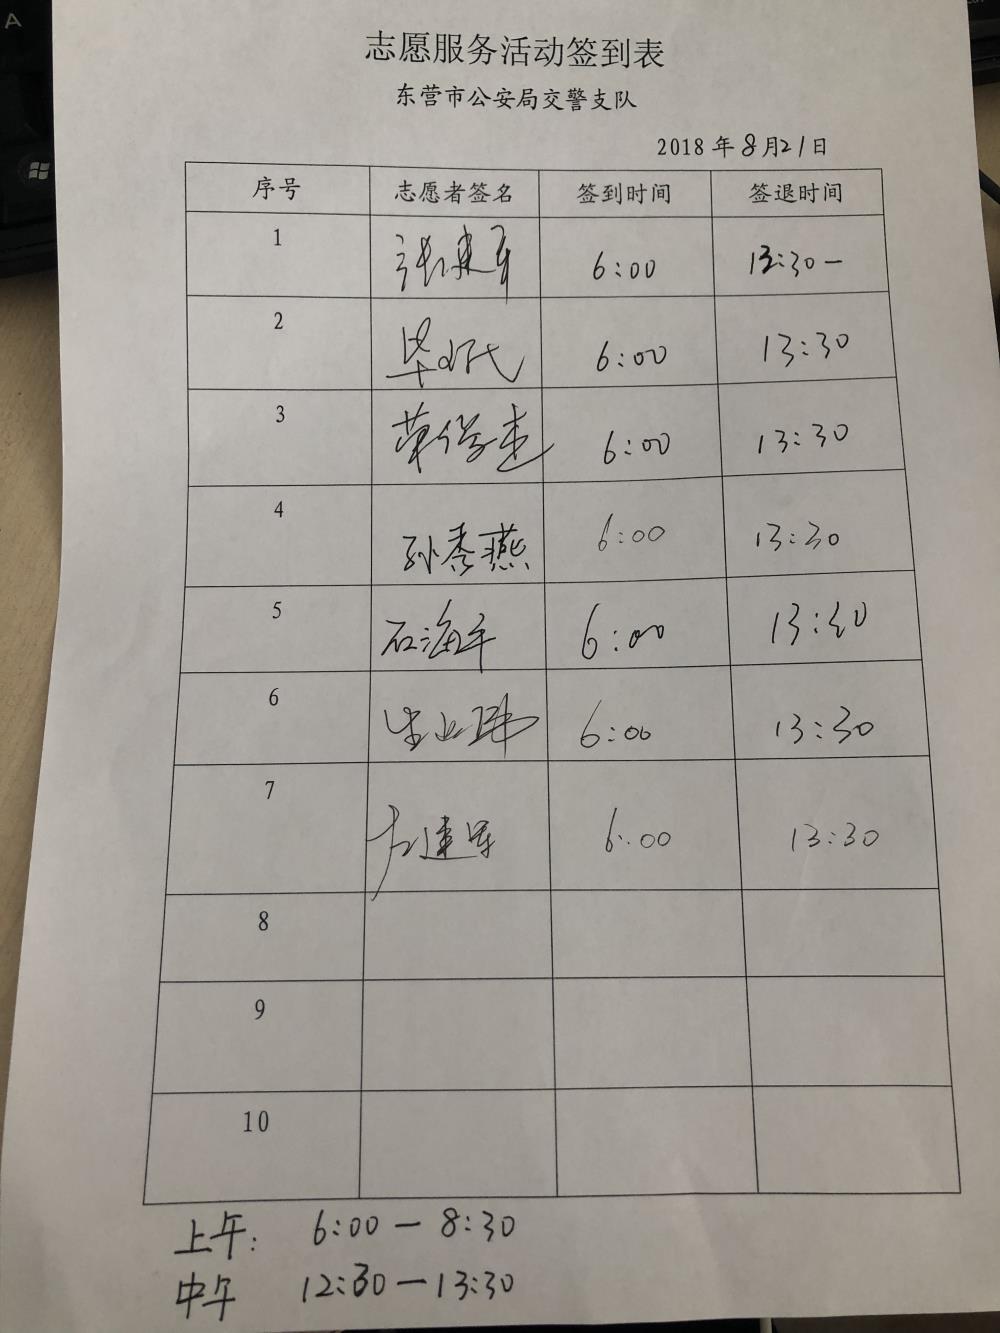 志愿服务活动签到表
东营市公安局交警支队
2018年8月21日
序号 志愿者签名 签到时间 签退时间
1 张建军 6:00 13:30-
2 毕 6:00 13:30
3 6:00 13:30
4 孙秀燕 6:00 13:30
5 石海军 6:00 13:30
6 6:00 13:30
7 建军 6:00 13:30
8
9
10
上午: 6:00-8:30
中午 12:30-13:30